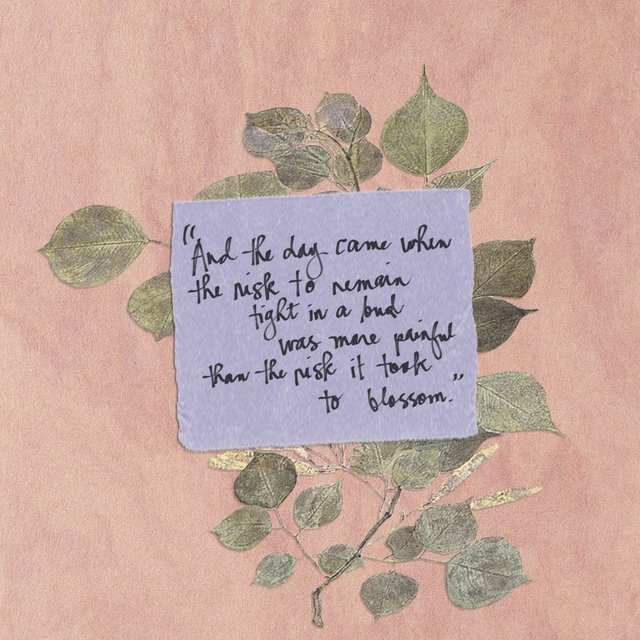 "And the day came when
the risk to remain
tight in a bud
was more painful
than the risk it took
to blossom."